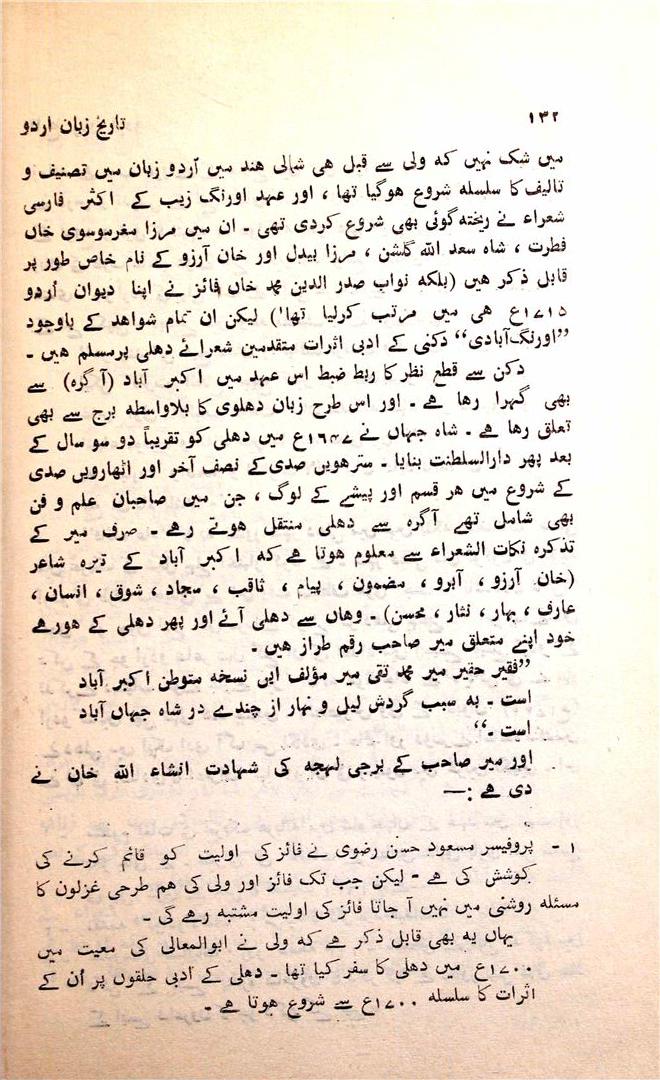 ۱۳۲
تاریخ زبان اردو
میں شک نہیں کہ ولی سے قبل ہی شمالی ہند میں اُردو زبان میں تصنیف و
تالیف کا سلسلہ شروع ہوگیا تھا ، اور عہد اورنگ زیب کے اکثر فارسی
شعراء نے ریختہ گوئی بھی شروع کردی تھی ۔ ان میں مرزا مغرموسوی خاں
فطرت ، شاہ سعد اللہ گلشن ، مرزا بیدل اور خان آرزو کے نام خاص طور پر
قابل ذکر ہیں (بلکہ نواب صدر الدین محمد خاں فائز نے اپنا دیوان اُردو
۱۷۱۵ع ہی میں مرتب کرلیا تھا۱) لیکن ان تمام شواہد کے باوجود
”اورنگ آبادی“ دکنی کے ادبی اثرات متقدمین شعرائے دہلی پر مسلم ہیں ۔
دکن سے قطع نظر کا ربط ضبط اس عہد میں اکبر آباد (آگرہ) سے
بھی گہرا رہا ہے ۔ اور اس طرح زبان دہلوی کا بلاواسطہ برج سے بھی
تعلق رہا ہے ۔ شاہ جہاں نے ۱۶۴۷ع میں دہلی کو تقریباً دو سو سال کے
بعد پھر دارالسلطنت بنایا ۔ سترھویں صدی کے نصف آخر اور اٹھارویں صدی
کے شروع میں ہر قسم اور پیشے کے لوگ ، جن میں صاحبان علم و فن
بھی شامل تھے آگرہ سے دہلی منتقل ہوتے رہے ۔ صرف میر کے
تذکرہ نکات الشعراء سے معلوم ہوتا ہے کہ اکبر آباد کے تیرہ شاعر
(خان آرزو ، آبرو ، مضمون ، پیام ، ثاقب ، سجاد ، شوق ، انسان ،
عارف ، بہار ، نثار ، محسن) ۔ وہاں سے دہلی آئے اور پھر دہلی کے ہورہے
خود اپنے متعلق میر صاحب رقم طراز ہیں ۔
”فقیر حقیر میر محمد تقی میر مؤلف ایں نسخہ متوطن اکبر آباد
است ۔ بہ سبب گردش لیل و نہار از چندے در شاہ جہاں آباد
است ۔“
اور میر صاحب کے برجی لہجہ کی شہادت انشاء اللہ خان نے
دی ہے :—
۱ - پروفیسر مسعود حسن رضوی نے فائز کی اولیت کو قائم کرنے کی
کوشش کی ہے - لیکن جب تک فائز اور ولی کی ہم طرحی غزلوں کا
مسئلہ روشنی میں نہیں آ جاتا فائز کی اولیت مشتبہ رہے گی -
یہاں یہ بھی قابل ذکر ہے کہ ولی نے ابوالمعالی کی معیت میں
۱۷۰۰ع میں دہلی کا سفر کیا تھا - دہلی کے ادبی حلقوں پر اُن کے
اثرات کا سلسلہ ۱۷۰۰ع سے شروع ہوتا ہے -